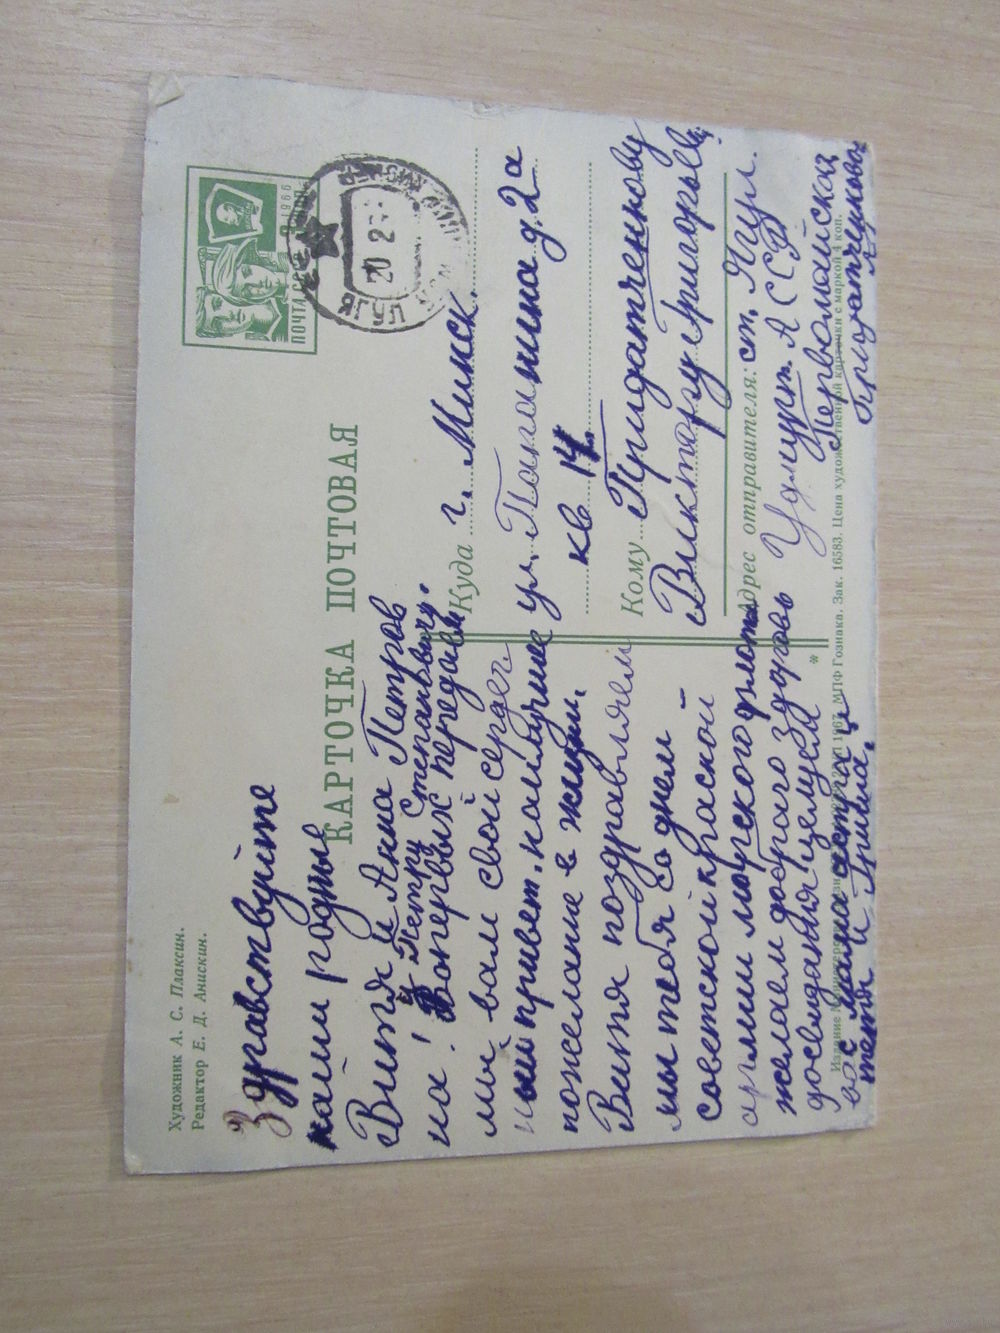 Художник А. С. Плаксин.
Редактор Е. Д. Анискин.
ПОЧТА СССР
1966
КАРТОЧКА ПОЧТОВАЯ
Здравствуйте
наши родные
Витя и Анна Петров
на! и Петру Степановичу.
Вопервых передаём
мы вам свой сердеч
ный привет. наилучшие
пожелание в жизни.
Витя поздравляем
мы тебя со днем
советской красной
армии морского флота
желаем доброго здоровь
досвидания целуем
вас мама сестра и
тетя и Гриша.
Куда г. Минск
ул. Папанина д. 2а
кв. 14.
Кому Придатченкову
Виктору Григорьеви
Адрес отправителя: ст. Пугл.
Удмурт. АССР
Первомайская
Придатченкова
Издание Министерства 1967. МПФ Гознака. Зак. 16583. Цена художественной карточки с маркой 4 коп.